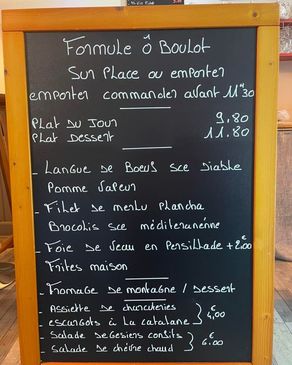 Formule ô Boulot
Sur Place ou emporter
emporter commander avant 11H30
Plat du Jour 9.80
Plat Dessert 11.80
- Langue de Boeuf sce Diable
Pomme Vapeur
- Filet de merlu Plancha
Brocolis sce méditeranénne
- Foie de Veau en Persillade +2.00€
Frites maison
- Fromage de montagne / Dessert
- Assiette de charcuteries
- escargots à la catalane } 4,00€
- Salade de Gesiers confits
- Salade de chèvre chaud } 6.00€